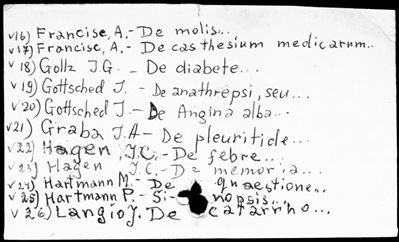 v16) Francise, A. - De molis...
v17) Francise, A. - De casthesium medicarum..
v 18) Gollz J.G. - De diabete...
v 19) Gottsched J. - De anathrepsi, seu...
v 20) Gottsched J - De Angina alba...
v21) Graba J.A - De pleuritide...
v 22) Hagen, J.C. - De febre...
v 23) Hagen J.C. - De memoria...
v 24) Hartmann M. - De quaestione...
v 25) Hartmann P. - Si- nopsis...
v 26) Langio J. De catarrho...